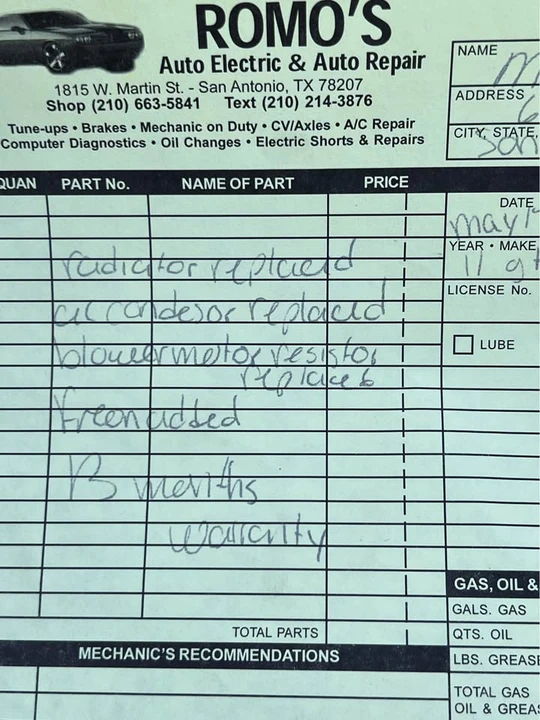 ROMO'S
Auto Electric & Auto Repair
1815 W. Martin St. - San Antonio, TX 78207
Shop (210) 663-5841 Text (210) 214-3876
Tune-ups • Brakes • Mechanic on Duty • CV/Axles • A/C Repair
Computer Diagnostics • Oil Changes • Electric Shorts & Repairs
NAME
ADDRESS
CITY, STATE,
QUAN PART No. NAME OF PART PRICE
DATE
may 1
YEAR • MAKE
11
LICENSE No.
LUBE
radiator replaced
ac condesor replaced
blower motor resistor
replaced
freon added
months
warranty
GAS, OIL &
GALS. GAS
TOTAL PARTS
QTS. OIL
MECHANIC'S RECOMMENDATIONS
LBS. GREASE
TOTAL GAS
OIL & GREAS